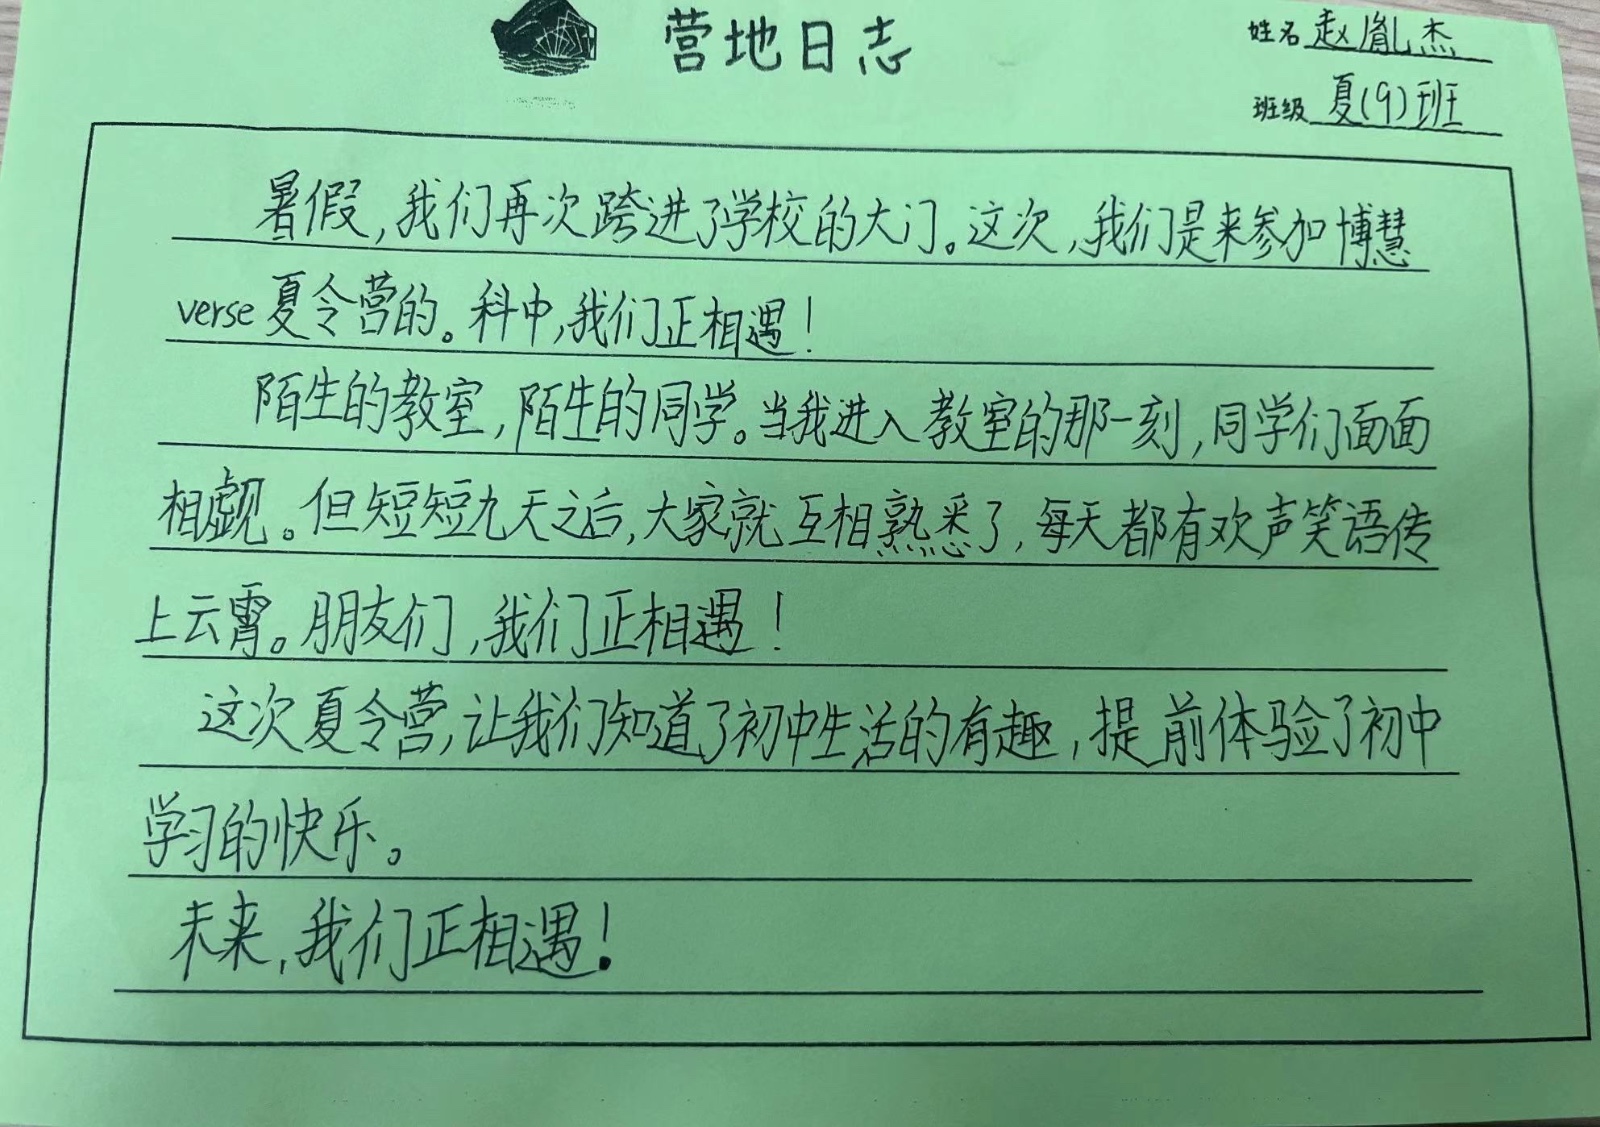 营地日志
姓名 赵胤杰
班级 夏(9)班
暑假,我们再次跨进了学校的大门。这次,我们是来参加博慧
verse夏令营的。科中,我们正相遇!
陌生的教室,陌生的同学。当我进入教室的那一刻,同学们面面
相觑。但短短九天之后,大家就互相熟悉了,每天都有欢声笑语传
上云霄。朋友们,我们正相遇!
这次夏令营,让我们知道了初中生活的有趣,提前体验了初中
学习的快乐。
未来,我们正相遇!